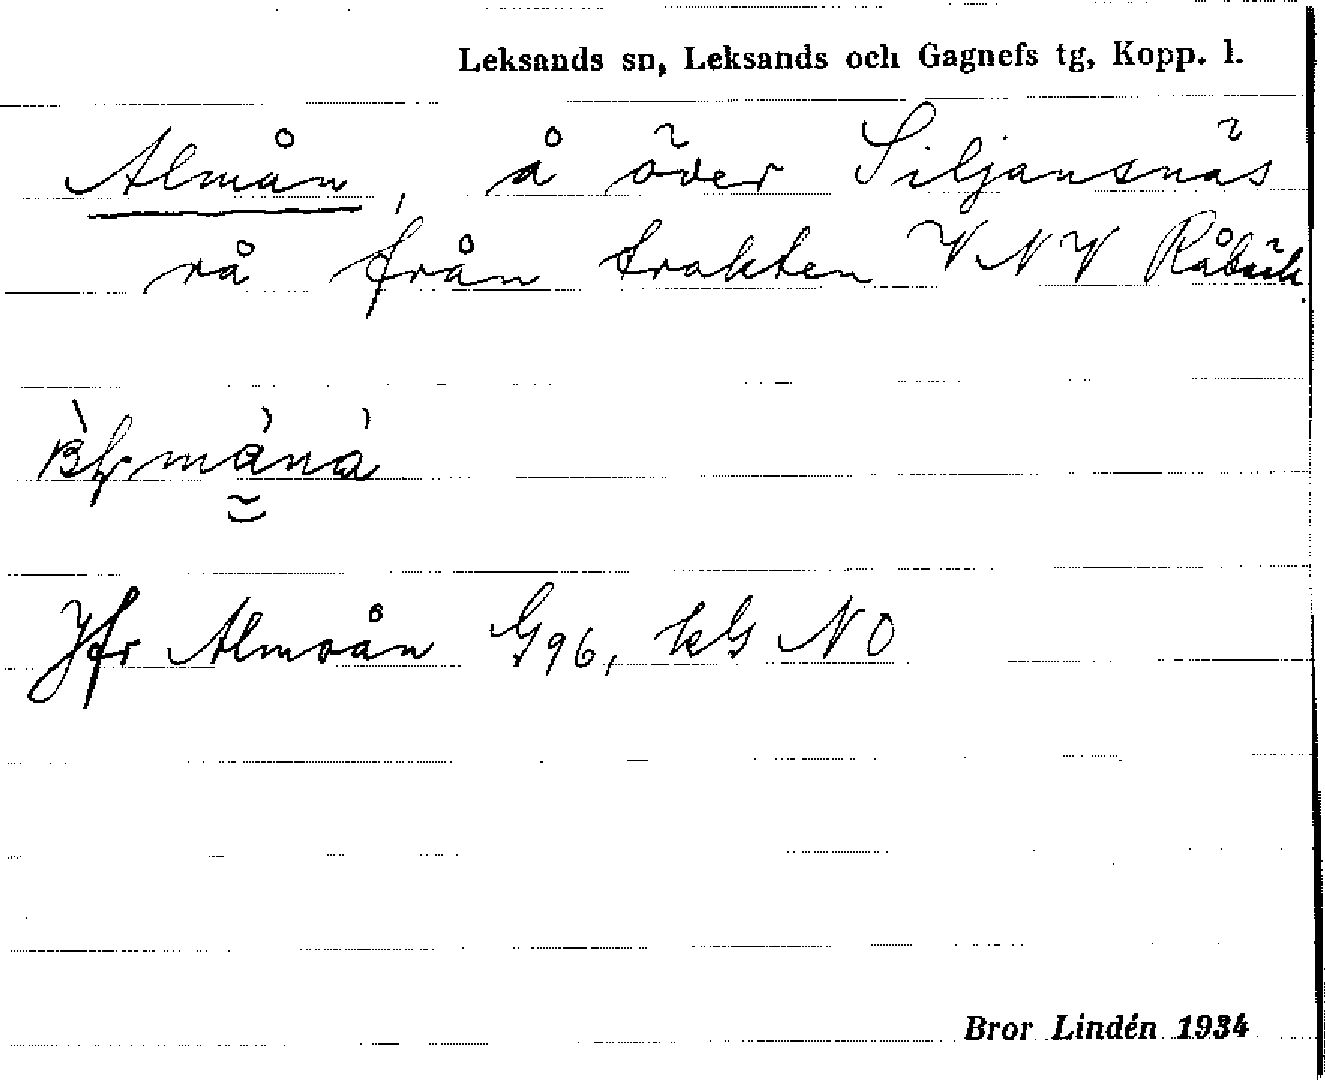 Leksands sn, Leksands och Gagnefs tg, Kopp. l.
Almån, å över Siljansnäs
rå från trakten VNV Råbäck.
Jfr Almoån G96, kG NO
Bror Lindén 1934